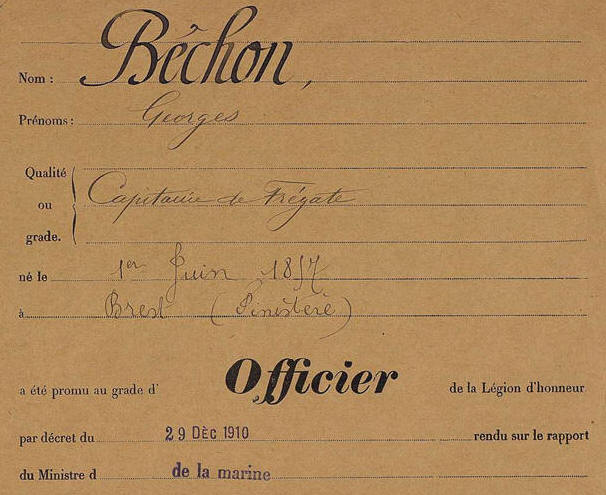 Nom : Béchon,
Prénoms : Georges
Qualité
ou Capitaine de Frégate
grade.
né le 1er Juin 1857
à Brest (Finistère)
a été promu au grade d' Officier de la Légion d'honneur
par décret du 29 DÈC 1910 rendu sur le rapport
du Ministre d de la marine